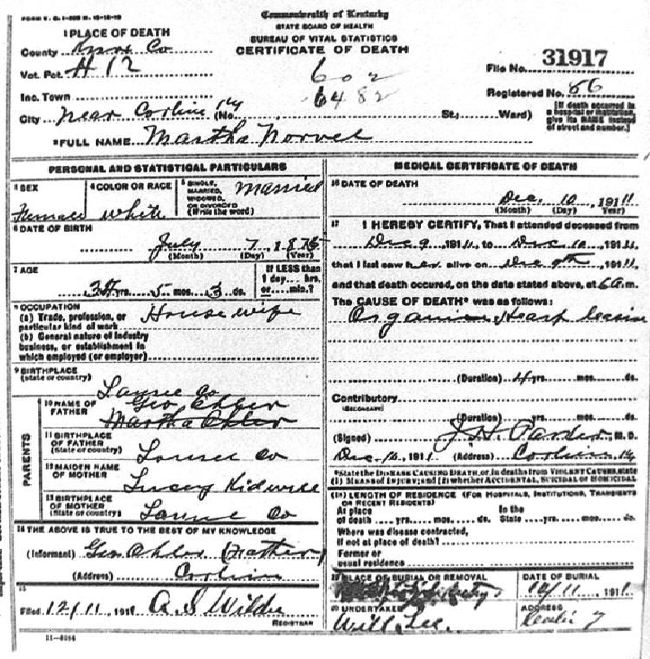 Commonwealth of Kentucky
STATE BOARD OF HEALTH
BUREAU OF VITAL STATISTICS
CERTIFICATE OF DEATH
1 PLACE OF DEATH
County Knox Co
Vot. Pct. #12
Inc. Town
City near Corbin Ky (No. St.; Ward)
602
6482
File No. 31917
Registered No. 86
[If death occurred in a hospital or institution, give its NAME instead of street and number.]
2 FULL NAME Martha Norvel
PERSONAL AND STATISTICAL PARTICULARS
3 SEX
Female
4 COLOR OR RACE
white
5 SINGLE, MARRIED, WIDOWED, OR DIVORCED (Write the word)
Married
6 DATE OF BIRTH
July 7, 1875
(Month) (Day) (Year)
7 AGE
yrs. 5 mos. 3 ds.
If LESS than 1 day... hrs. or...... min.?
8 OCCUPATION
(a) Trade, profession, or particular kind of work House wife
(b) General nature of industry business, or establishment in which employed (or employer)
9 BIRTHPLACE
(State or country)
Co
PARENTS
10 NAME OF FATHER
Geo
Martha
11 BIRTHPLACE OF FATHER
(State or country)
Co
12 MAIDEN NAME OF MOTHER
13 BIRTHPLACE OF MOTHER
(State or country)
Co
14 THE ABOVE IS TRUE TO THE BEST OF MY KNOWLEDGE
(Informant) Geo
(Address) Corbin
15
Filed 12/11 1911
REGISTRAR
11-6086
MEDICAL CERTIFICATE OF DEATH
16 DATE OF DEATH
Dec. 10, 1911
(Month) (Day) (Year)
17 I HEREBY CERTIFY, That I attended deceased from
Dec 9, 1911, to Dec 10, 1911,
that I last saw her alive on Dec 9th, 1911,
and that death occured, on the date stated above, at 6 a m.
The CAUSE OF DEATH* was as follows:
Organic Heart
(Duration) 4 yrs. mos. ds.
Contributory
(SECONDARY)
(Duration) yrs. mos. ds.
(Signed) J.H. Parker, M.D.
Dec. 10, 1911 (Address) Corbin Ky
*State the DISEASE CAUSING DEATH, or, in deaths from VIOLENT CAUSES, state (1) MEANS OF INJURY; and (2) whether ACCIDENTAL, SUICIDAL or HOMICIDAL
18 LENGTH OF RESIDENCE (FOR HOSPITALS, INSTITUTIONS, TRANSIENTS OR RECENT RESIDENTS)
At place of death.... yrs..... mos..... ds. In the State.... yrs..... mos..... ds.
Where was disease contracted, if not at place of death?
Former or usual residence
19 PLACE OF BURIAL OR REMOVAL
DATE OF BURIAL
1911
20 UNDERTAKER
Will Lee
ADDRESS